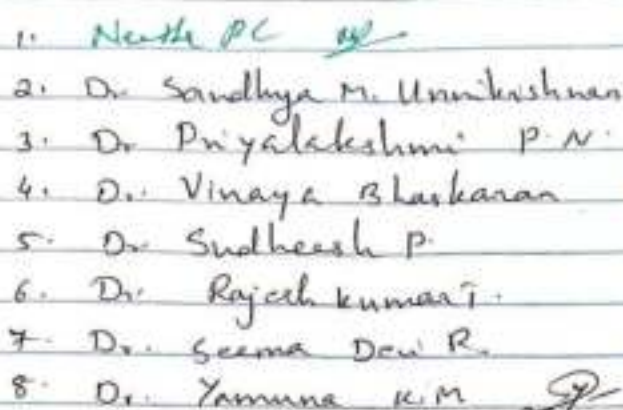 1. Neetha PC
2. Dr Sandhya M. Unnikrishnan
3. Dr Priyalakshmi P.N.
4. Dr. Vinaya Bhaskaran
5. Dr Sudheesh P.
6. Dr. Rajesh kumar T.
7. Dr. Seema Devi R.
8. Dr. Yamuna K.M